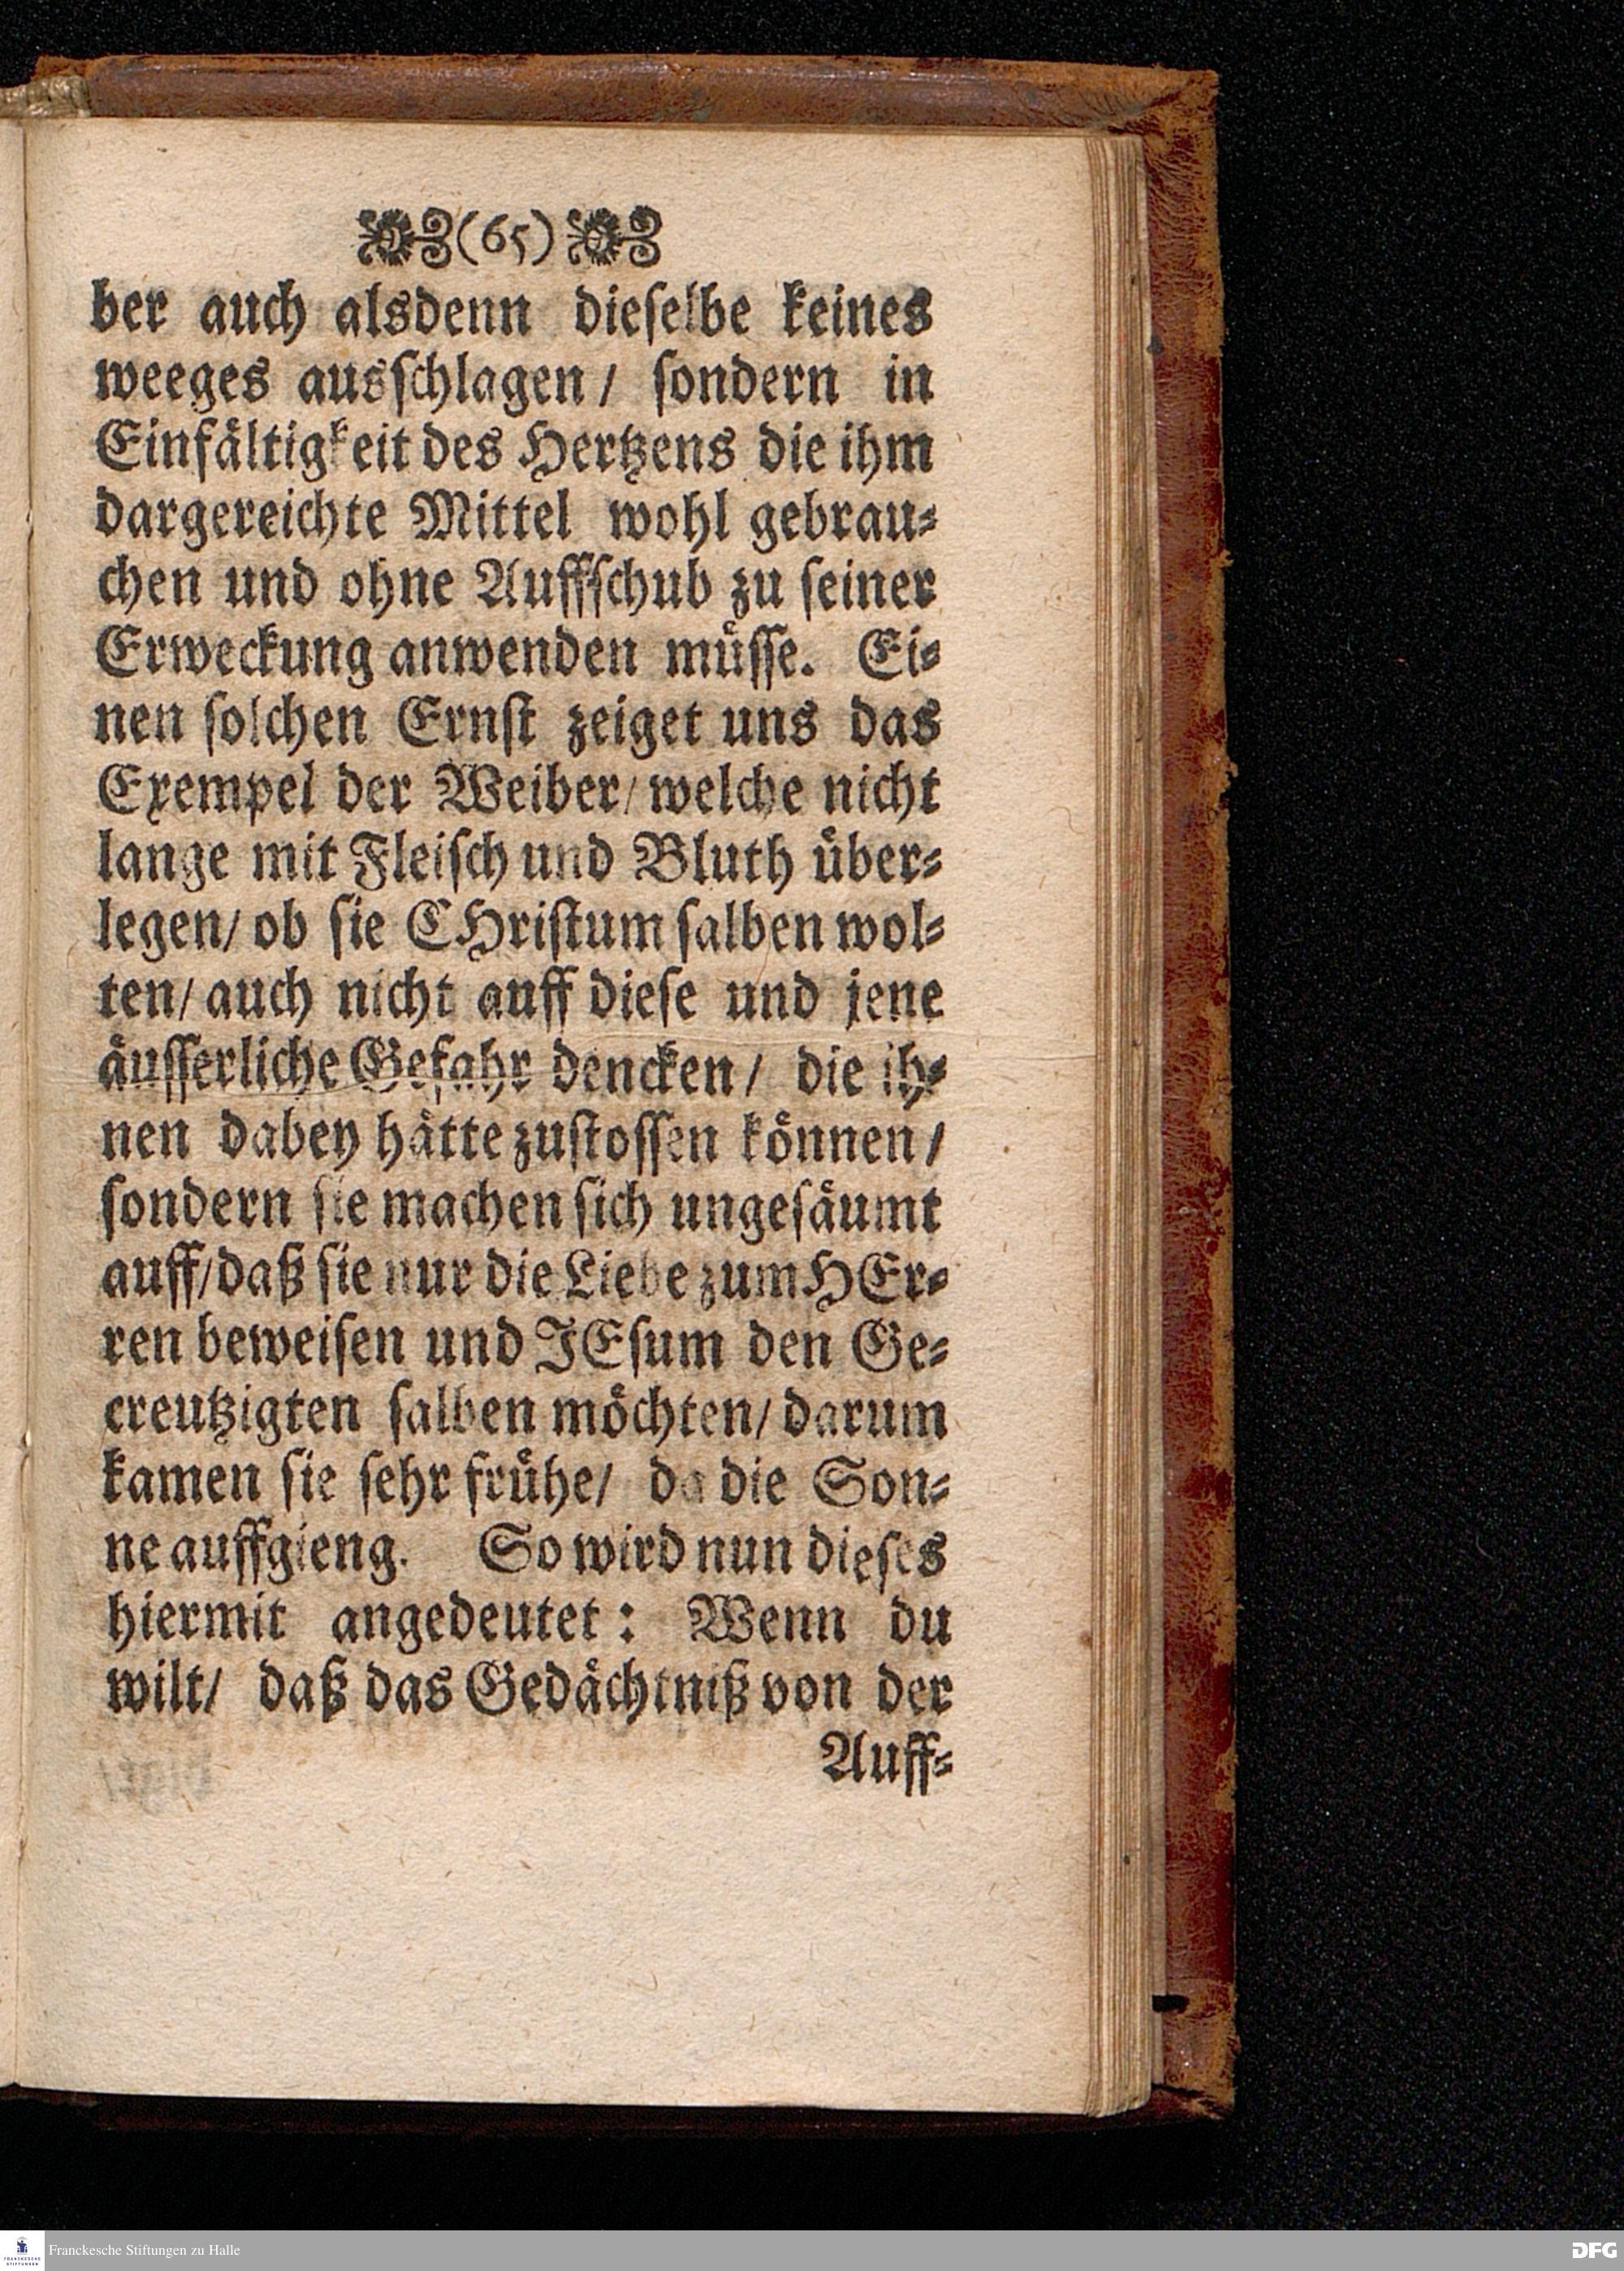 (65)
ber auch alsdenn dieselbe keines
weeges ausschlagen / sondern in
Einfältigkeit des Hertzens die ihm
dargereichte Mittel wohl gebrau⸗
chen und ohne Auffschub zu seiner
Erweckung anwenden müsse. Ei⸗
nen solchen Ernst zeiget uns das
Exempel der Weiber / welche nicht
lange mit Fleisch und Bluth über⸗
legen / ob sie CHristum salben wol⸗
ten / auch nicht auff diese und jene
äusserliche Gefahr dencken / die ih⸗
nen dabey hätte zustossen können /
sondern sie machen sich ungesäumt
auff / daß sie nur die Liebe zum HEr⸗
ren beweisen und JEsum den Ge⸗
creutzigten salben möchten / darum
kamen sie sehr frühe / da die Son⸗
ne auffgieng. So wird nun dieses
hiermit angedeutet : Wenn du
wilt / daß das Gedächtniß von der
Auff⸗
Franckesche Stiftungen zu Halle
DFG